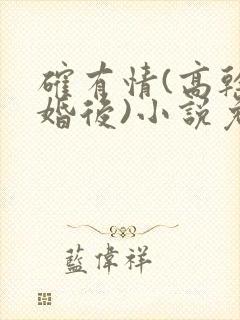 確有情(高幹
婚後)小說
藍偉祥